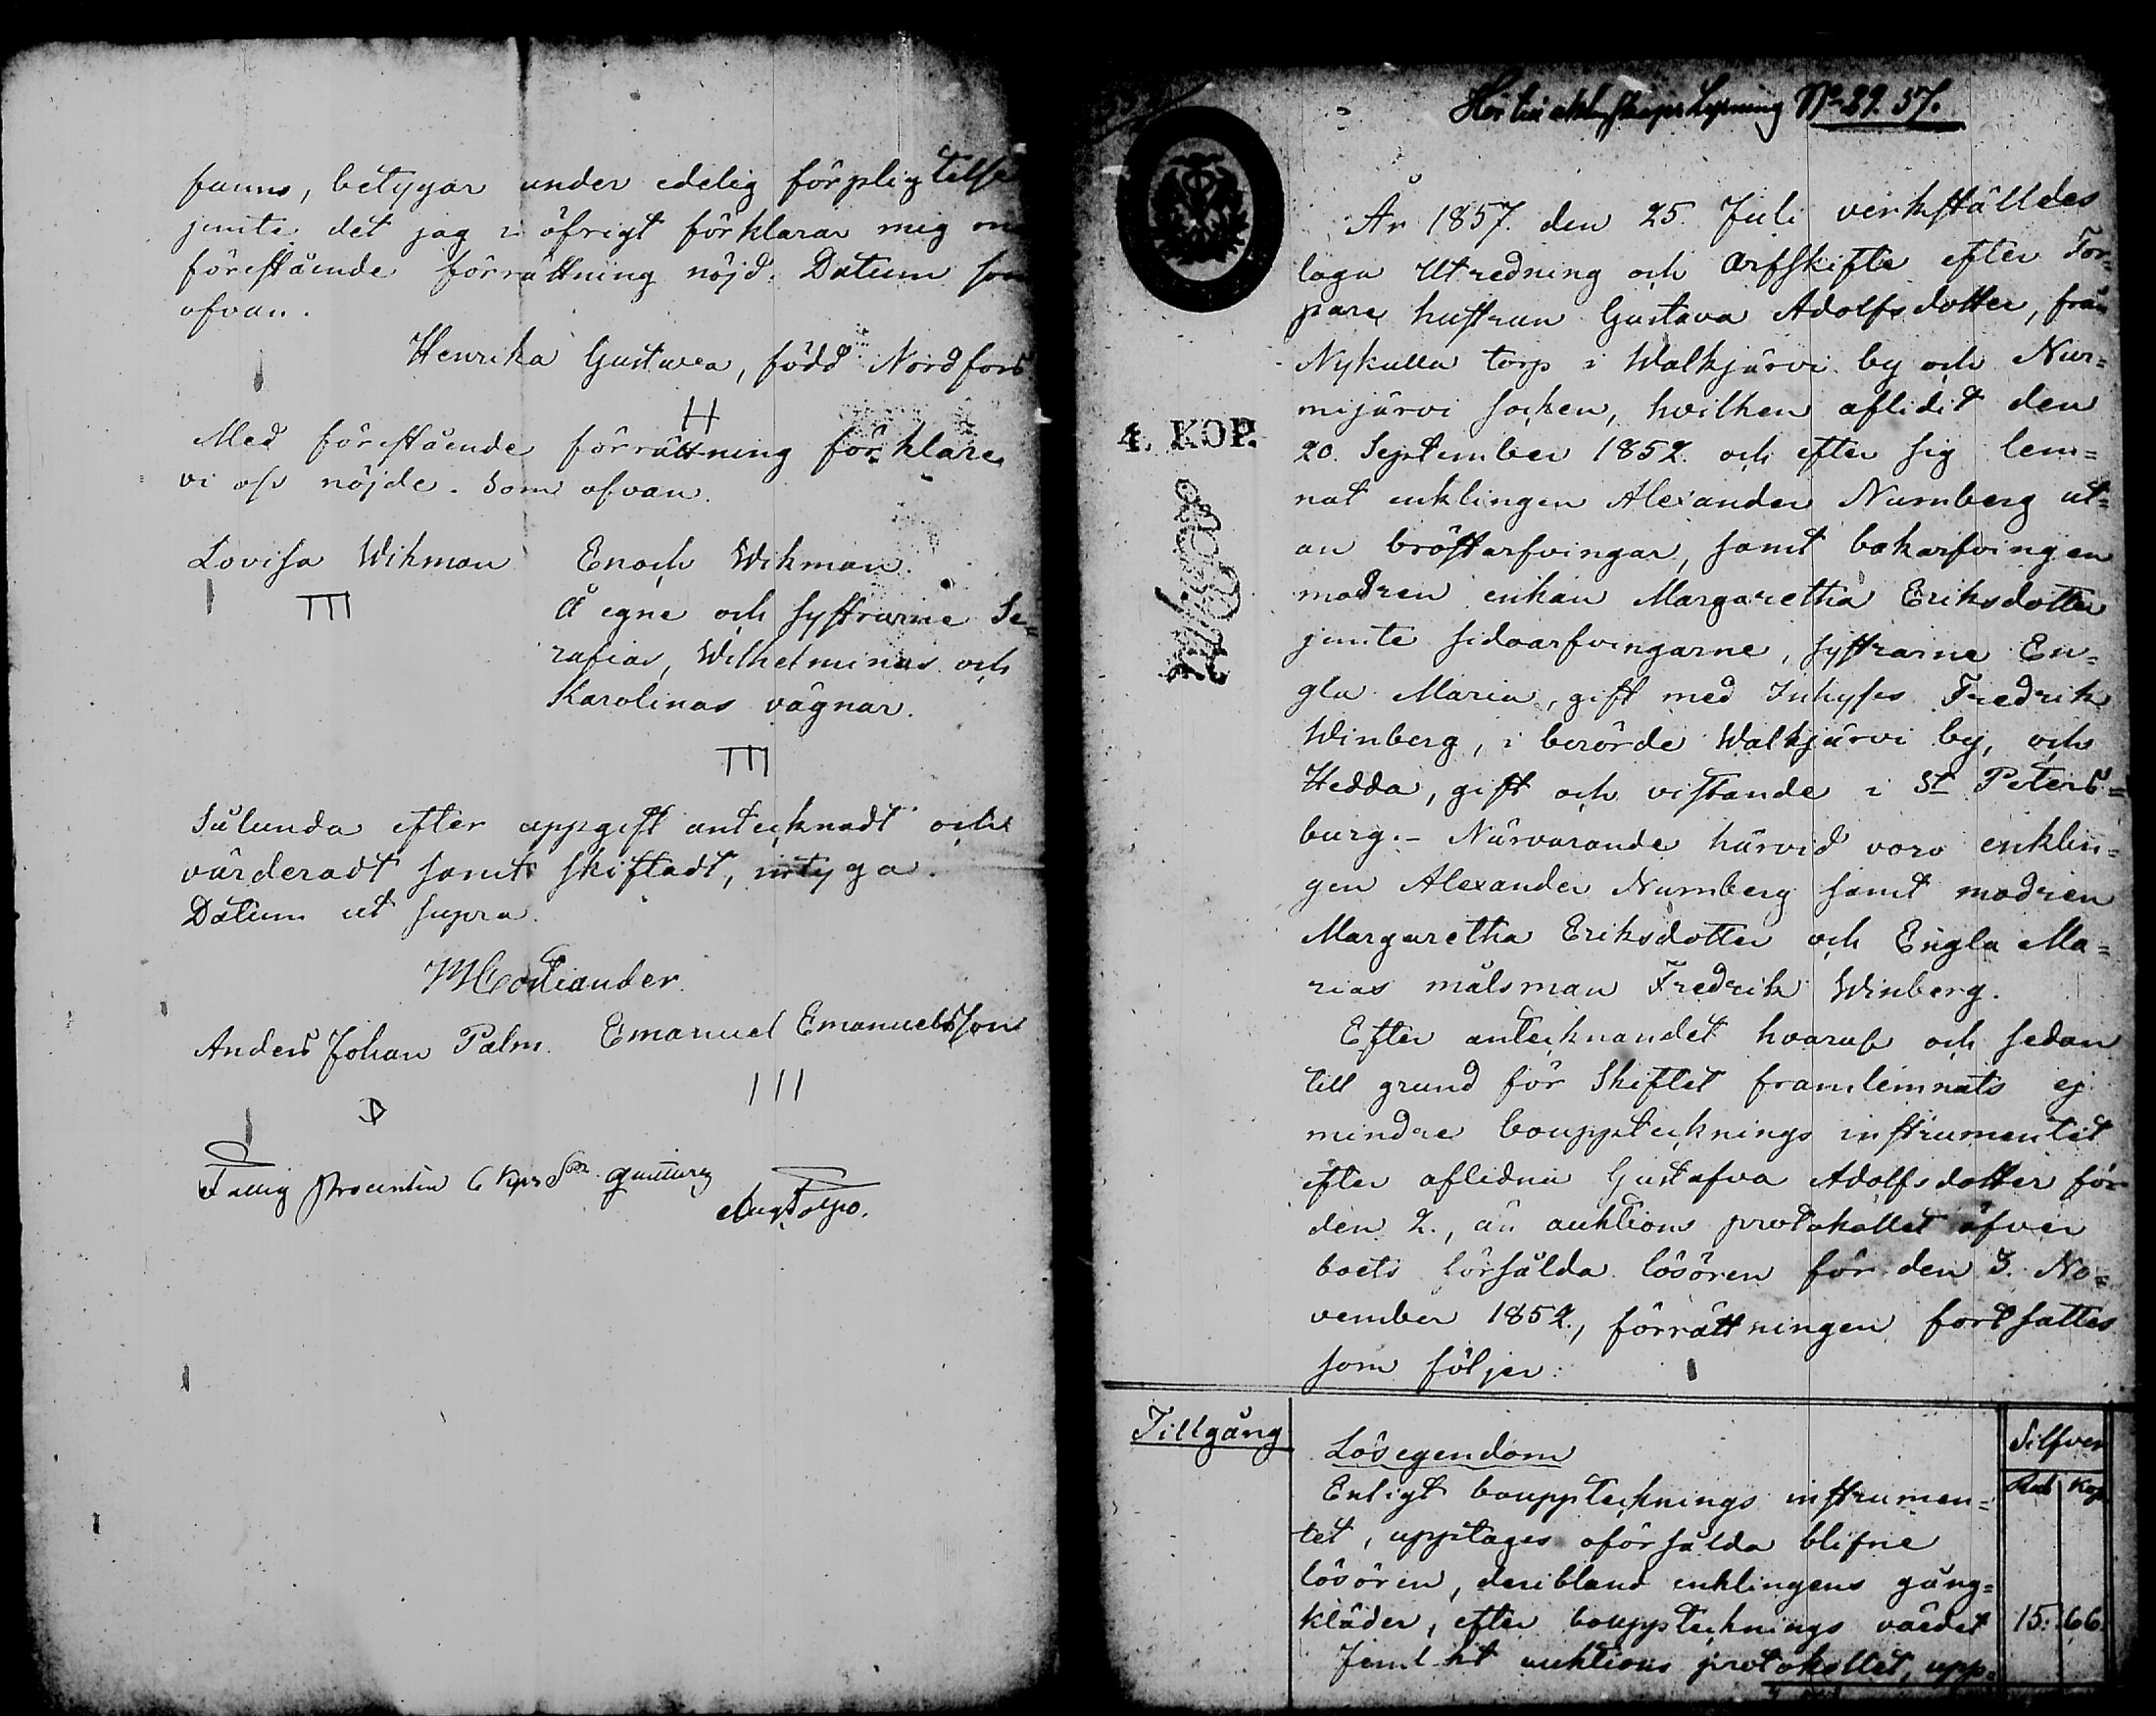 funns, betygar under edelig förpligtelse
jemte det jag i öfrigt förklarar mig
förestående förrättning nöjd. Datum som
ofvan.
Henrika Gustava, född Nordfors
Med förestående förrättning förklare
vi oss nöjde. Som ofvan.
Lovisa Wikman Enoch Wikman.
Å egne och systrarne Se=
rafias, Wilhelminas och
Karolinas vägnar.
Sålunda efter uppgift antecknadt och
värderadt samt skiftadt, intyga.
Datum ut supra.
Anders Johan Palm. Emanuel Emanuelsson
Fattig Procenten 6 Kop. Sr
N:o 29. 57.
År 1857. den 25. Juli verkställdes
laga Utredning och Arfskifte efter Tor=
pare hustrun Gustava Adolfsdotter, från
Nykulla torp i Walkjärvi by och Nur=
mijärvi socken, hvilken aflidit den
20. September 1852. och efter sig lem=
nat enklingen Alexander Nurnberg ut=
an bröstarfvingar, samt bakarfvingen
modren enkan Margaretha Eriksdotter
jemte sidoarfvingarne, systrarne En=
gla Maria, gift med Inhyses Fredrik
Winberg, i berörde Walkjärvi by, och
Hedda, gift och vistande i St Peters=
burg. - Närvarande härvid voro enklin=
gen Alexander Nurnberg samt modren
Margaretha Eriksdotter och Engla Ma=
rias målsman Fredrik Winberg.
Efter antecknandet hvaraf och sedan
till grund för Skiftet framlemnats ej
mindre bouppteknings instrumentet
efter aflidna Gustafva Adolfsdotter för
den 2., än auktions protokollet öfver
boets försålda lösören för den 3. No=
vember 1852., förrättningen fortsattes
som följer:
4. KOP.
Tillgång
Lösegendom
Silfver
Rub Kop
Enligt bouppteknings instrumen=
tet, upptages oförsålda blifne
lösören, deribland enklingens gång=
kläder, efter bouppteknings värdet 15. 66.
Jemlikt auktions protokollet, upp=